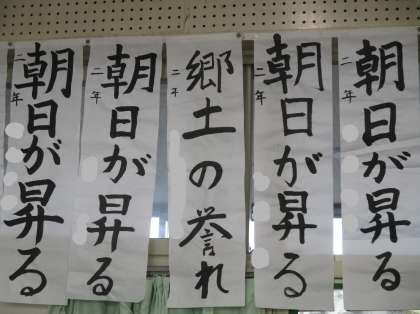 朝日が昇る
二年
朝日が昇る
二年
郷土の誉れ
二年
朝日が昇る
二年
朝日が昇る
二年